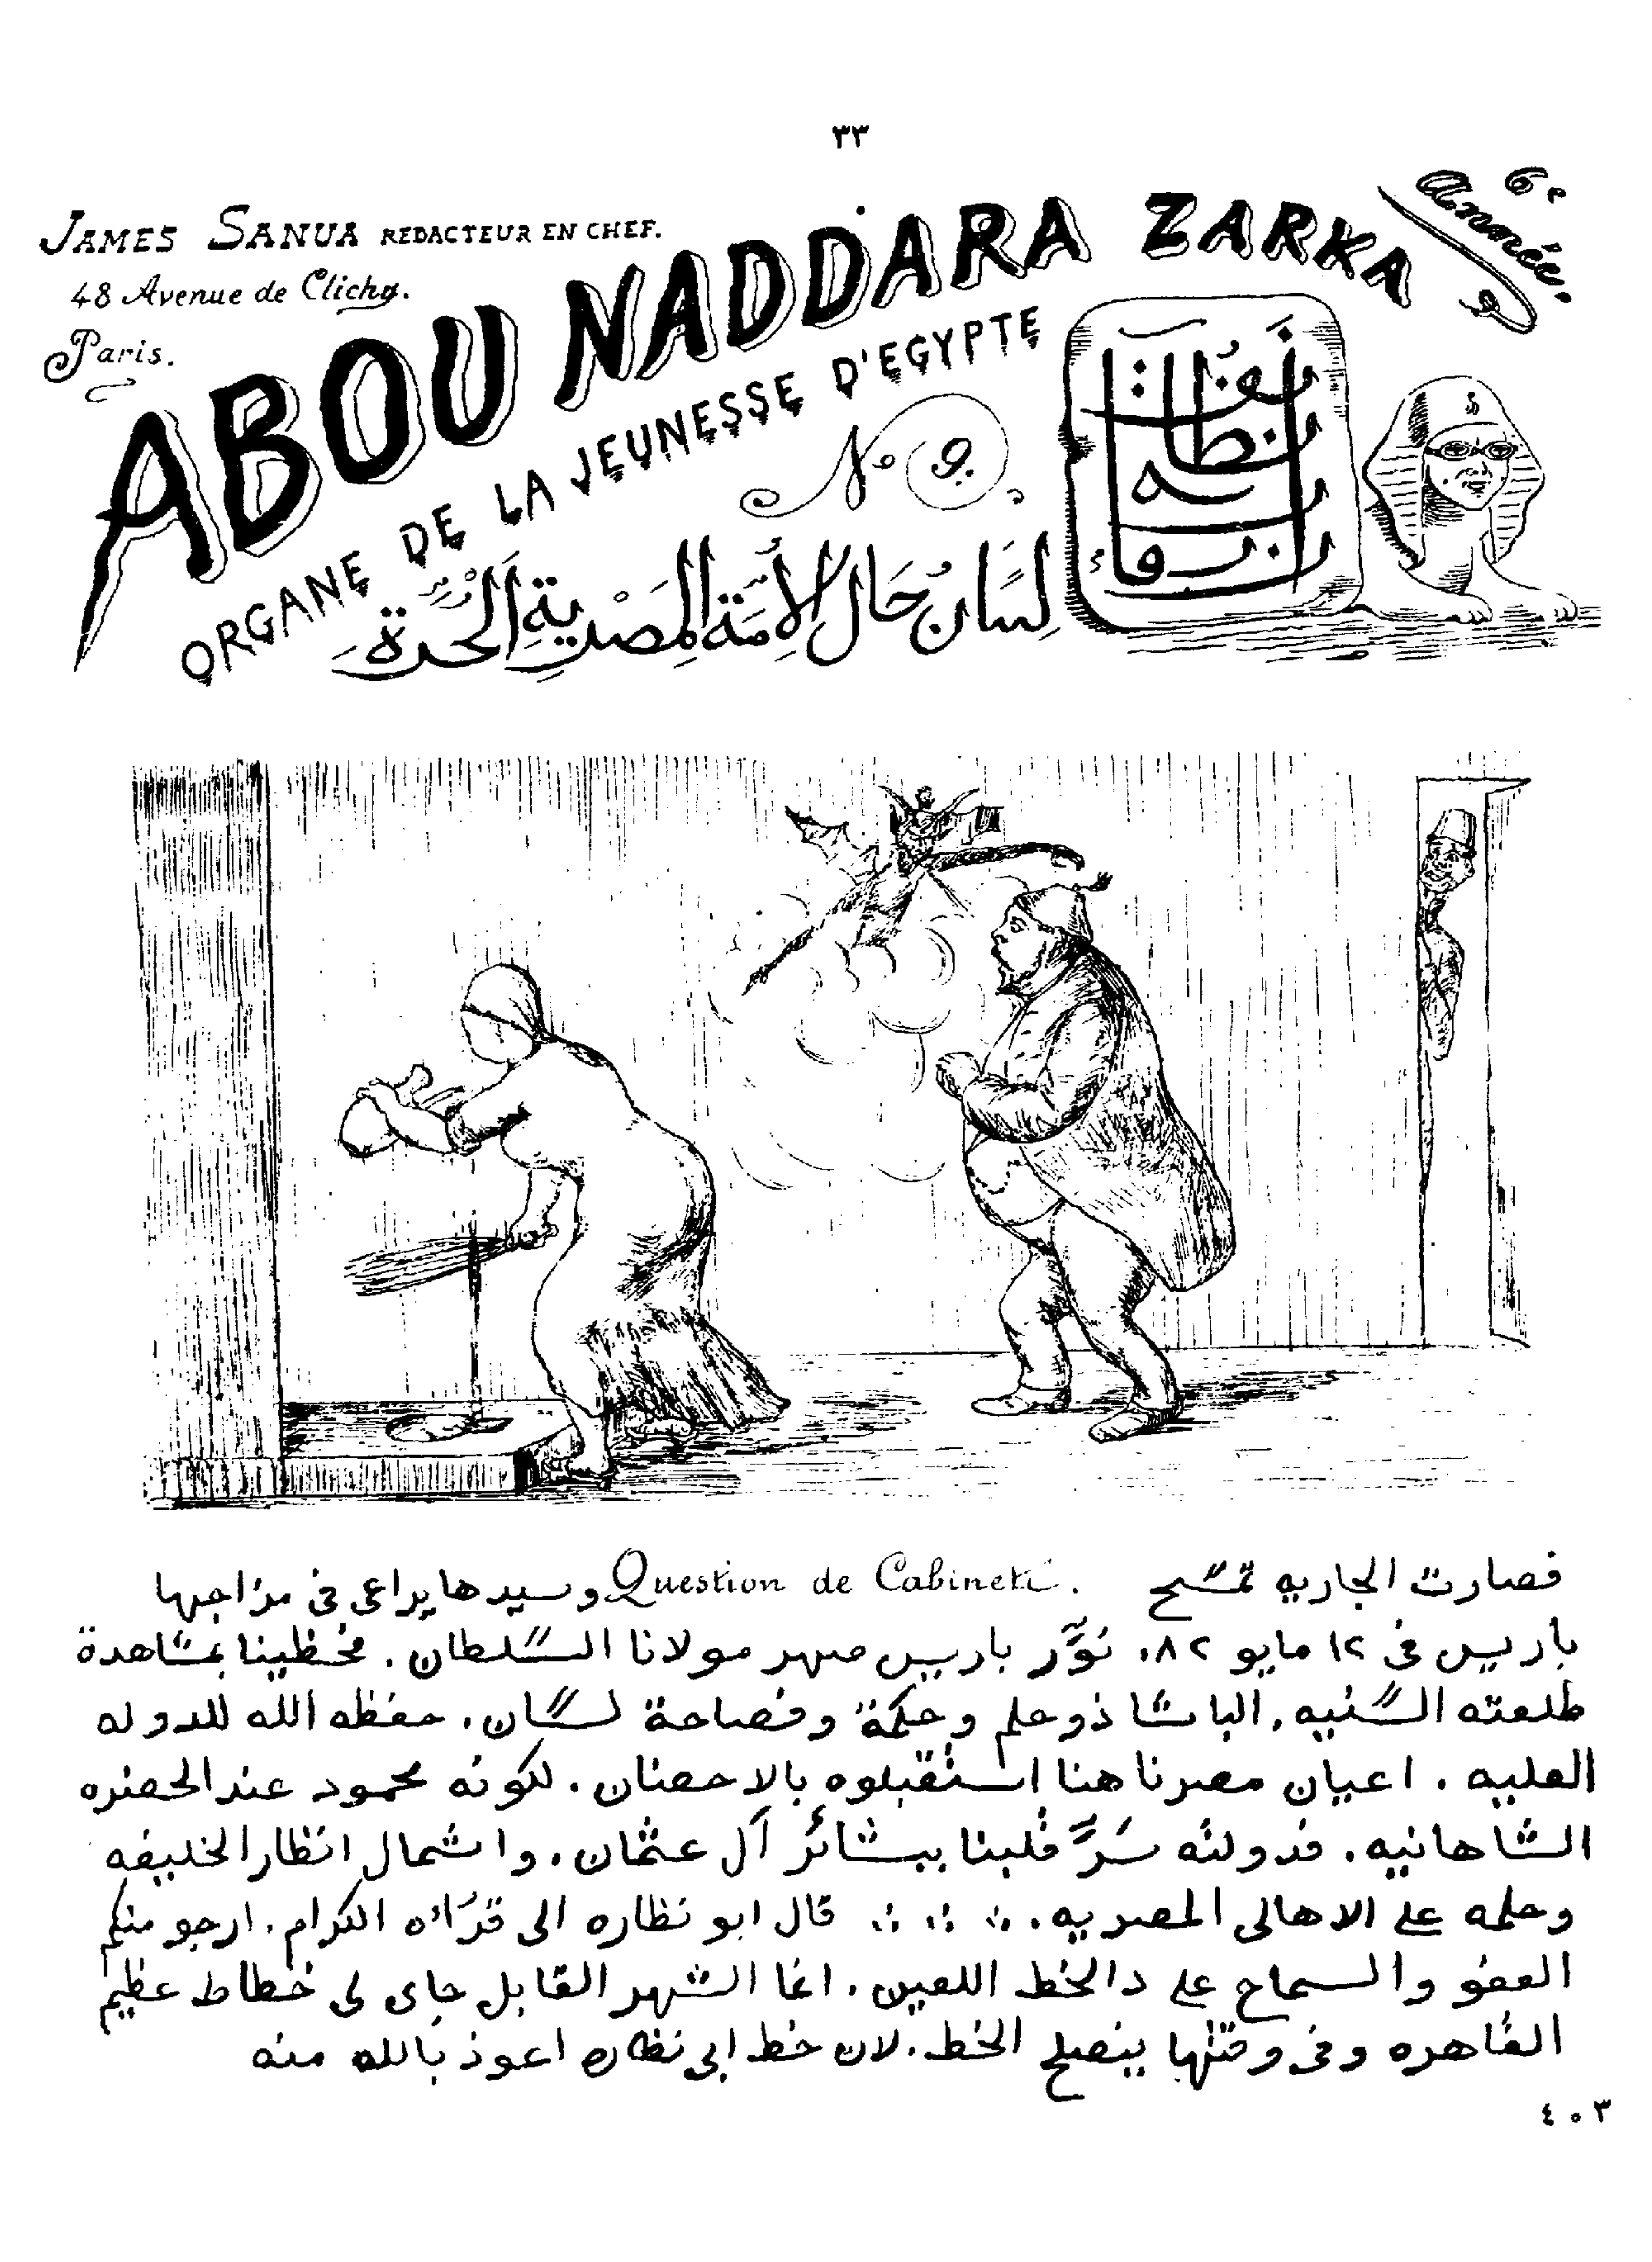 ٣٣
JAMES SANUA REDACTEUR EN CHEF.
48 Avenue de Clichy.
Paris.
ABOU NADDARA ZARKA
6e Année.
ORGANE DE LA JEUNESSE D'EGYPTE
No 9.
لِسَان حَال الأُمَّة المِصْرِيَّة الحُرَّة
فصارت الجاريه تمسّح Question de Cabinet. وسيدها يراعى فى مزاجها
باريس فى ١٢ مايو ٨٢. نوَّر باريس صهر مولانا السلطان. فحظينا بمشاهدة
طلعته السنيه. الباشا ذو حلم وحكمة وفصاحة لسان. حفظه الله للدوله
العليه. اعيان مصرنا هنا استقبلوه بالاحضان. لكونه محمود عند الحضره
الشاهانيه. فدولته سَرَّ قلبنا ببشائر آل عثمان. واشمال انظار الخليفه
وحلمه على الاهالى المصريه. قال ابو نظاره الى قرَائه الكرام. ارجو منكم
العفو والسماح على دا الخط اللعين. انما الشهر القابل جاى لى خطاط عظيم
القاهره وفى وقتها ينصلح الخط. لان خط ابى نظاره اعوذ بالله منه
٤٠٣